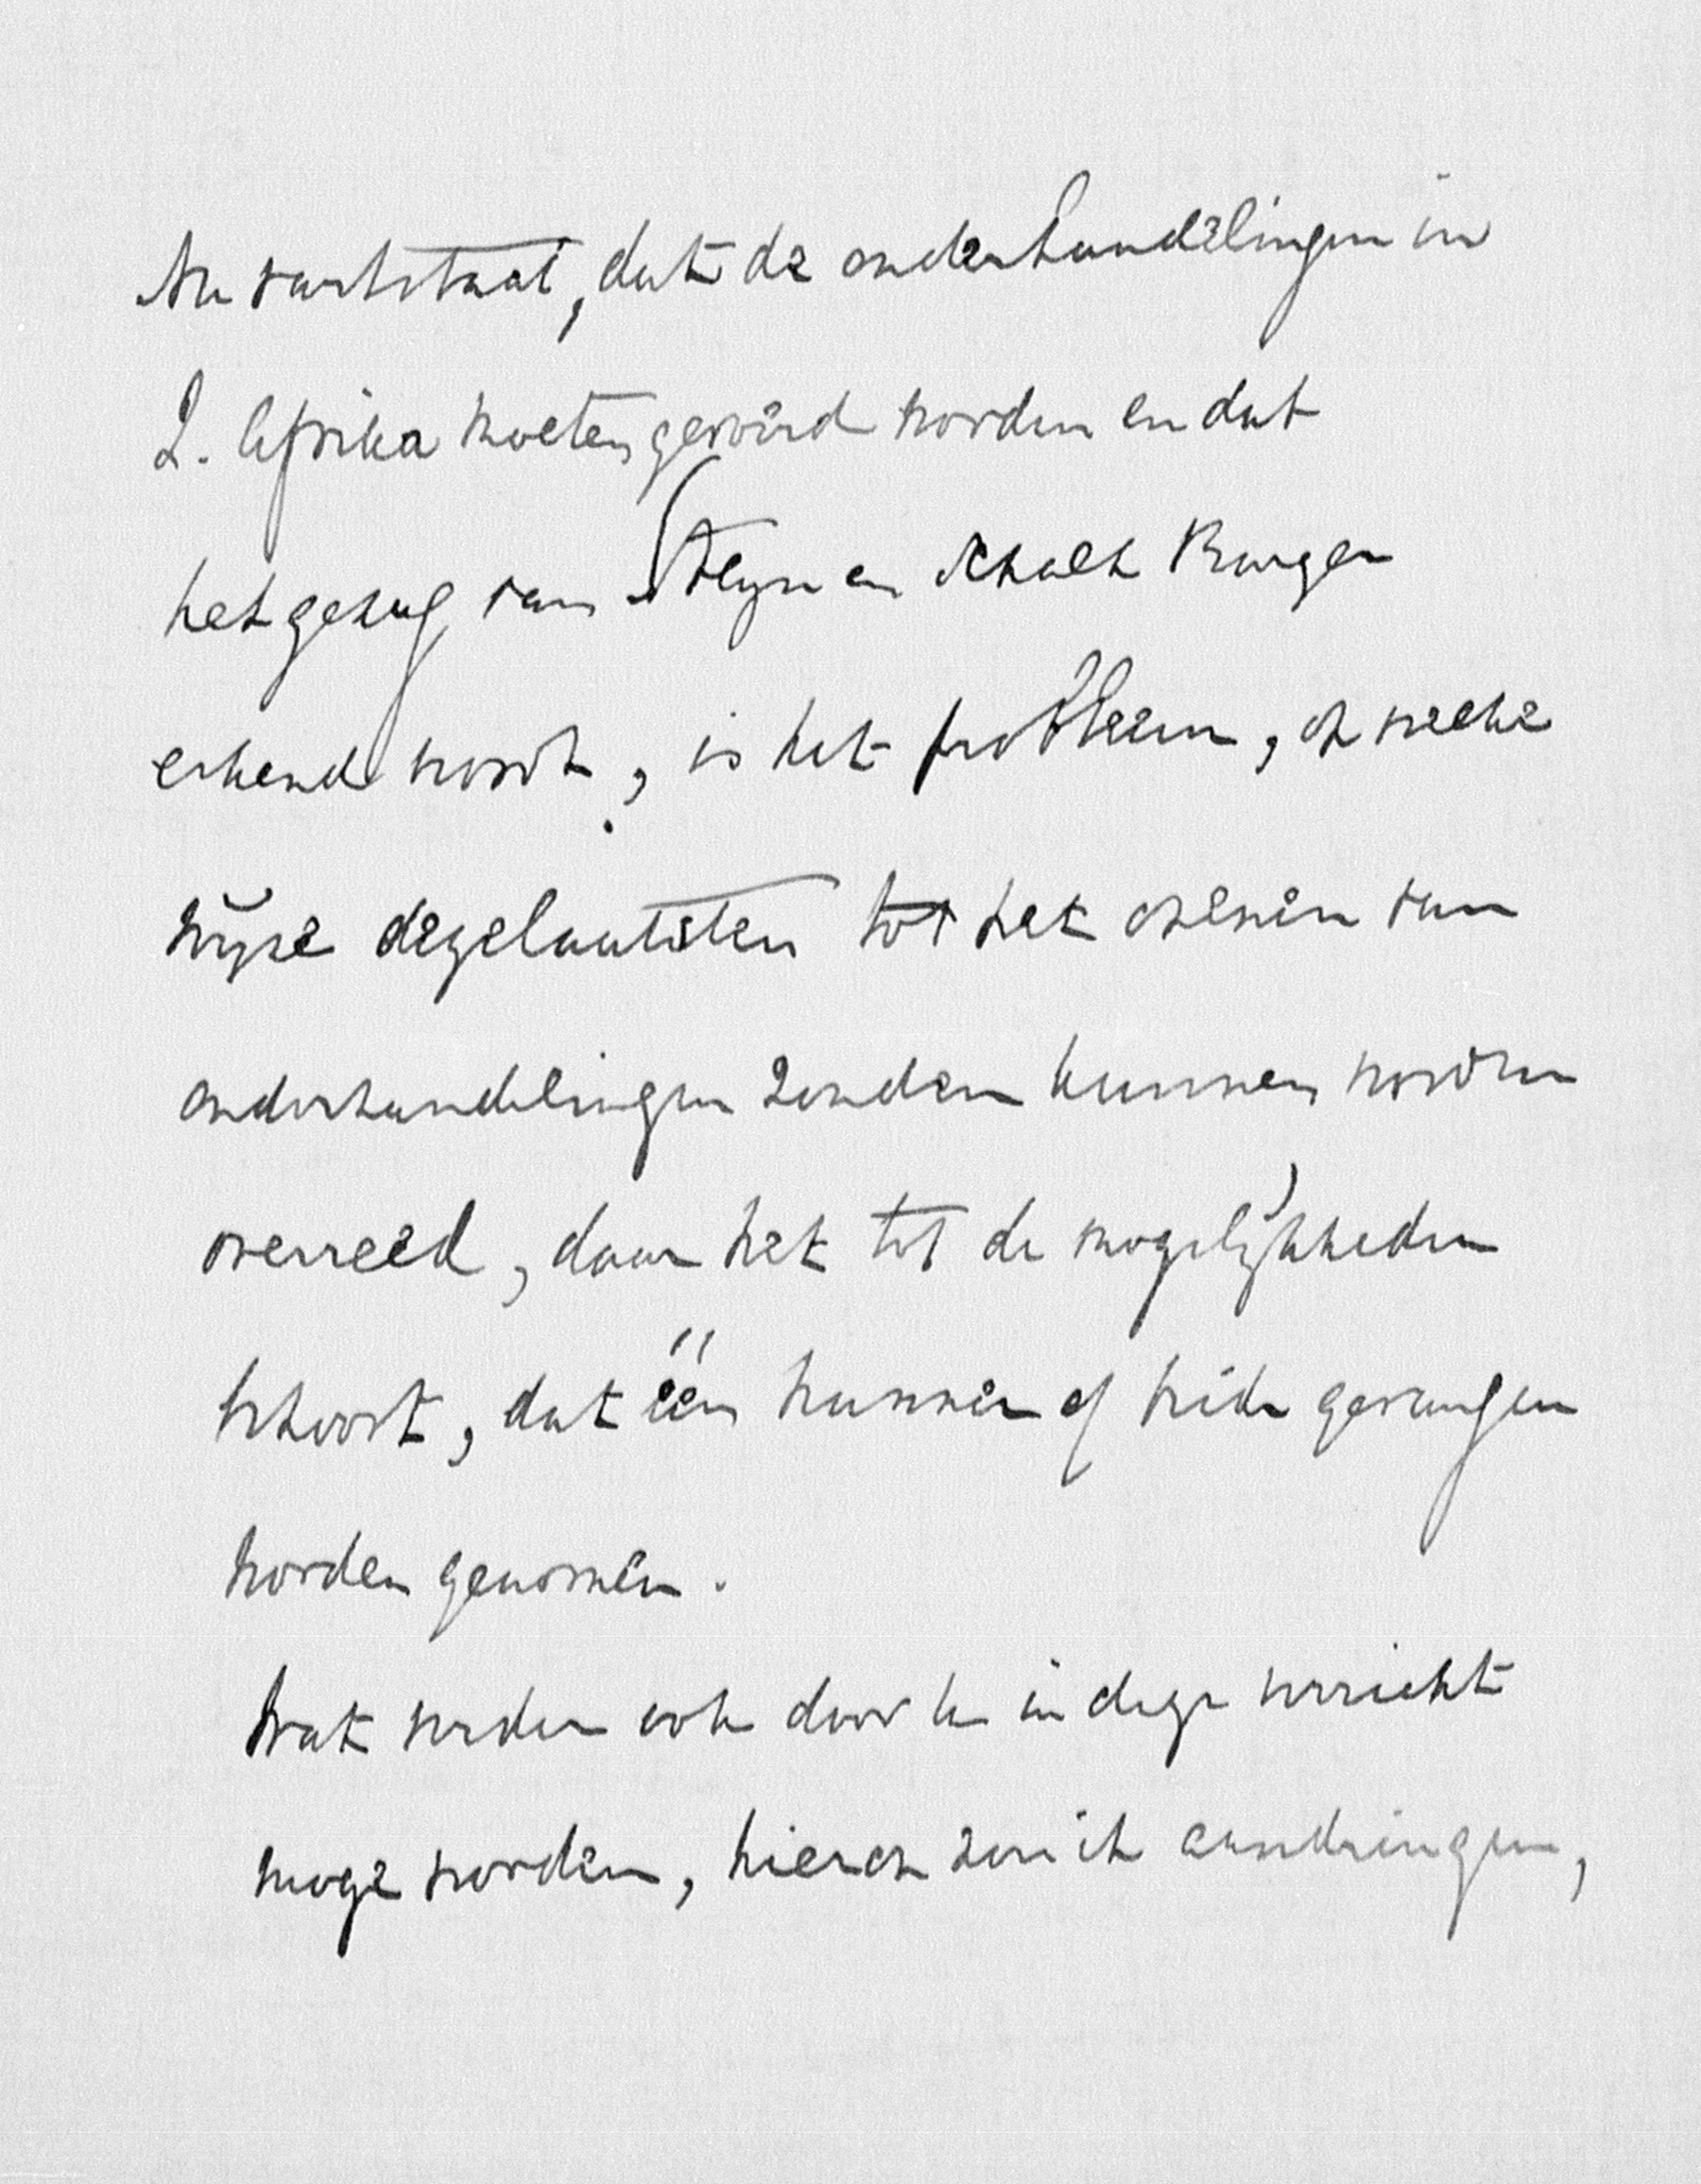 Nu vaststaat, dat de onderhandelingen in
Z. Afrika moeten gevoerd worden en dat
het gezag van Steyn en Schalk Burger
erkend wordt, is het probleem, op welke
wijze dezelaatsten tot het openen van
onderhandelingen zouden kunnen worden
overreed, daar het tot de mogelijkheden
behoort, dat één hunner of beide gevangen
worden genomen.
Wat verder ook door U in deze verricht
moge worden, hierop zou ik aandringen,